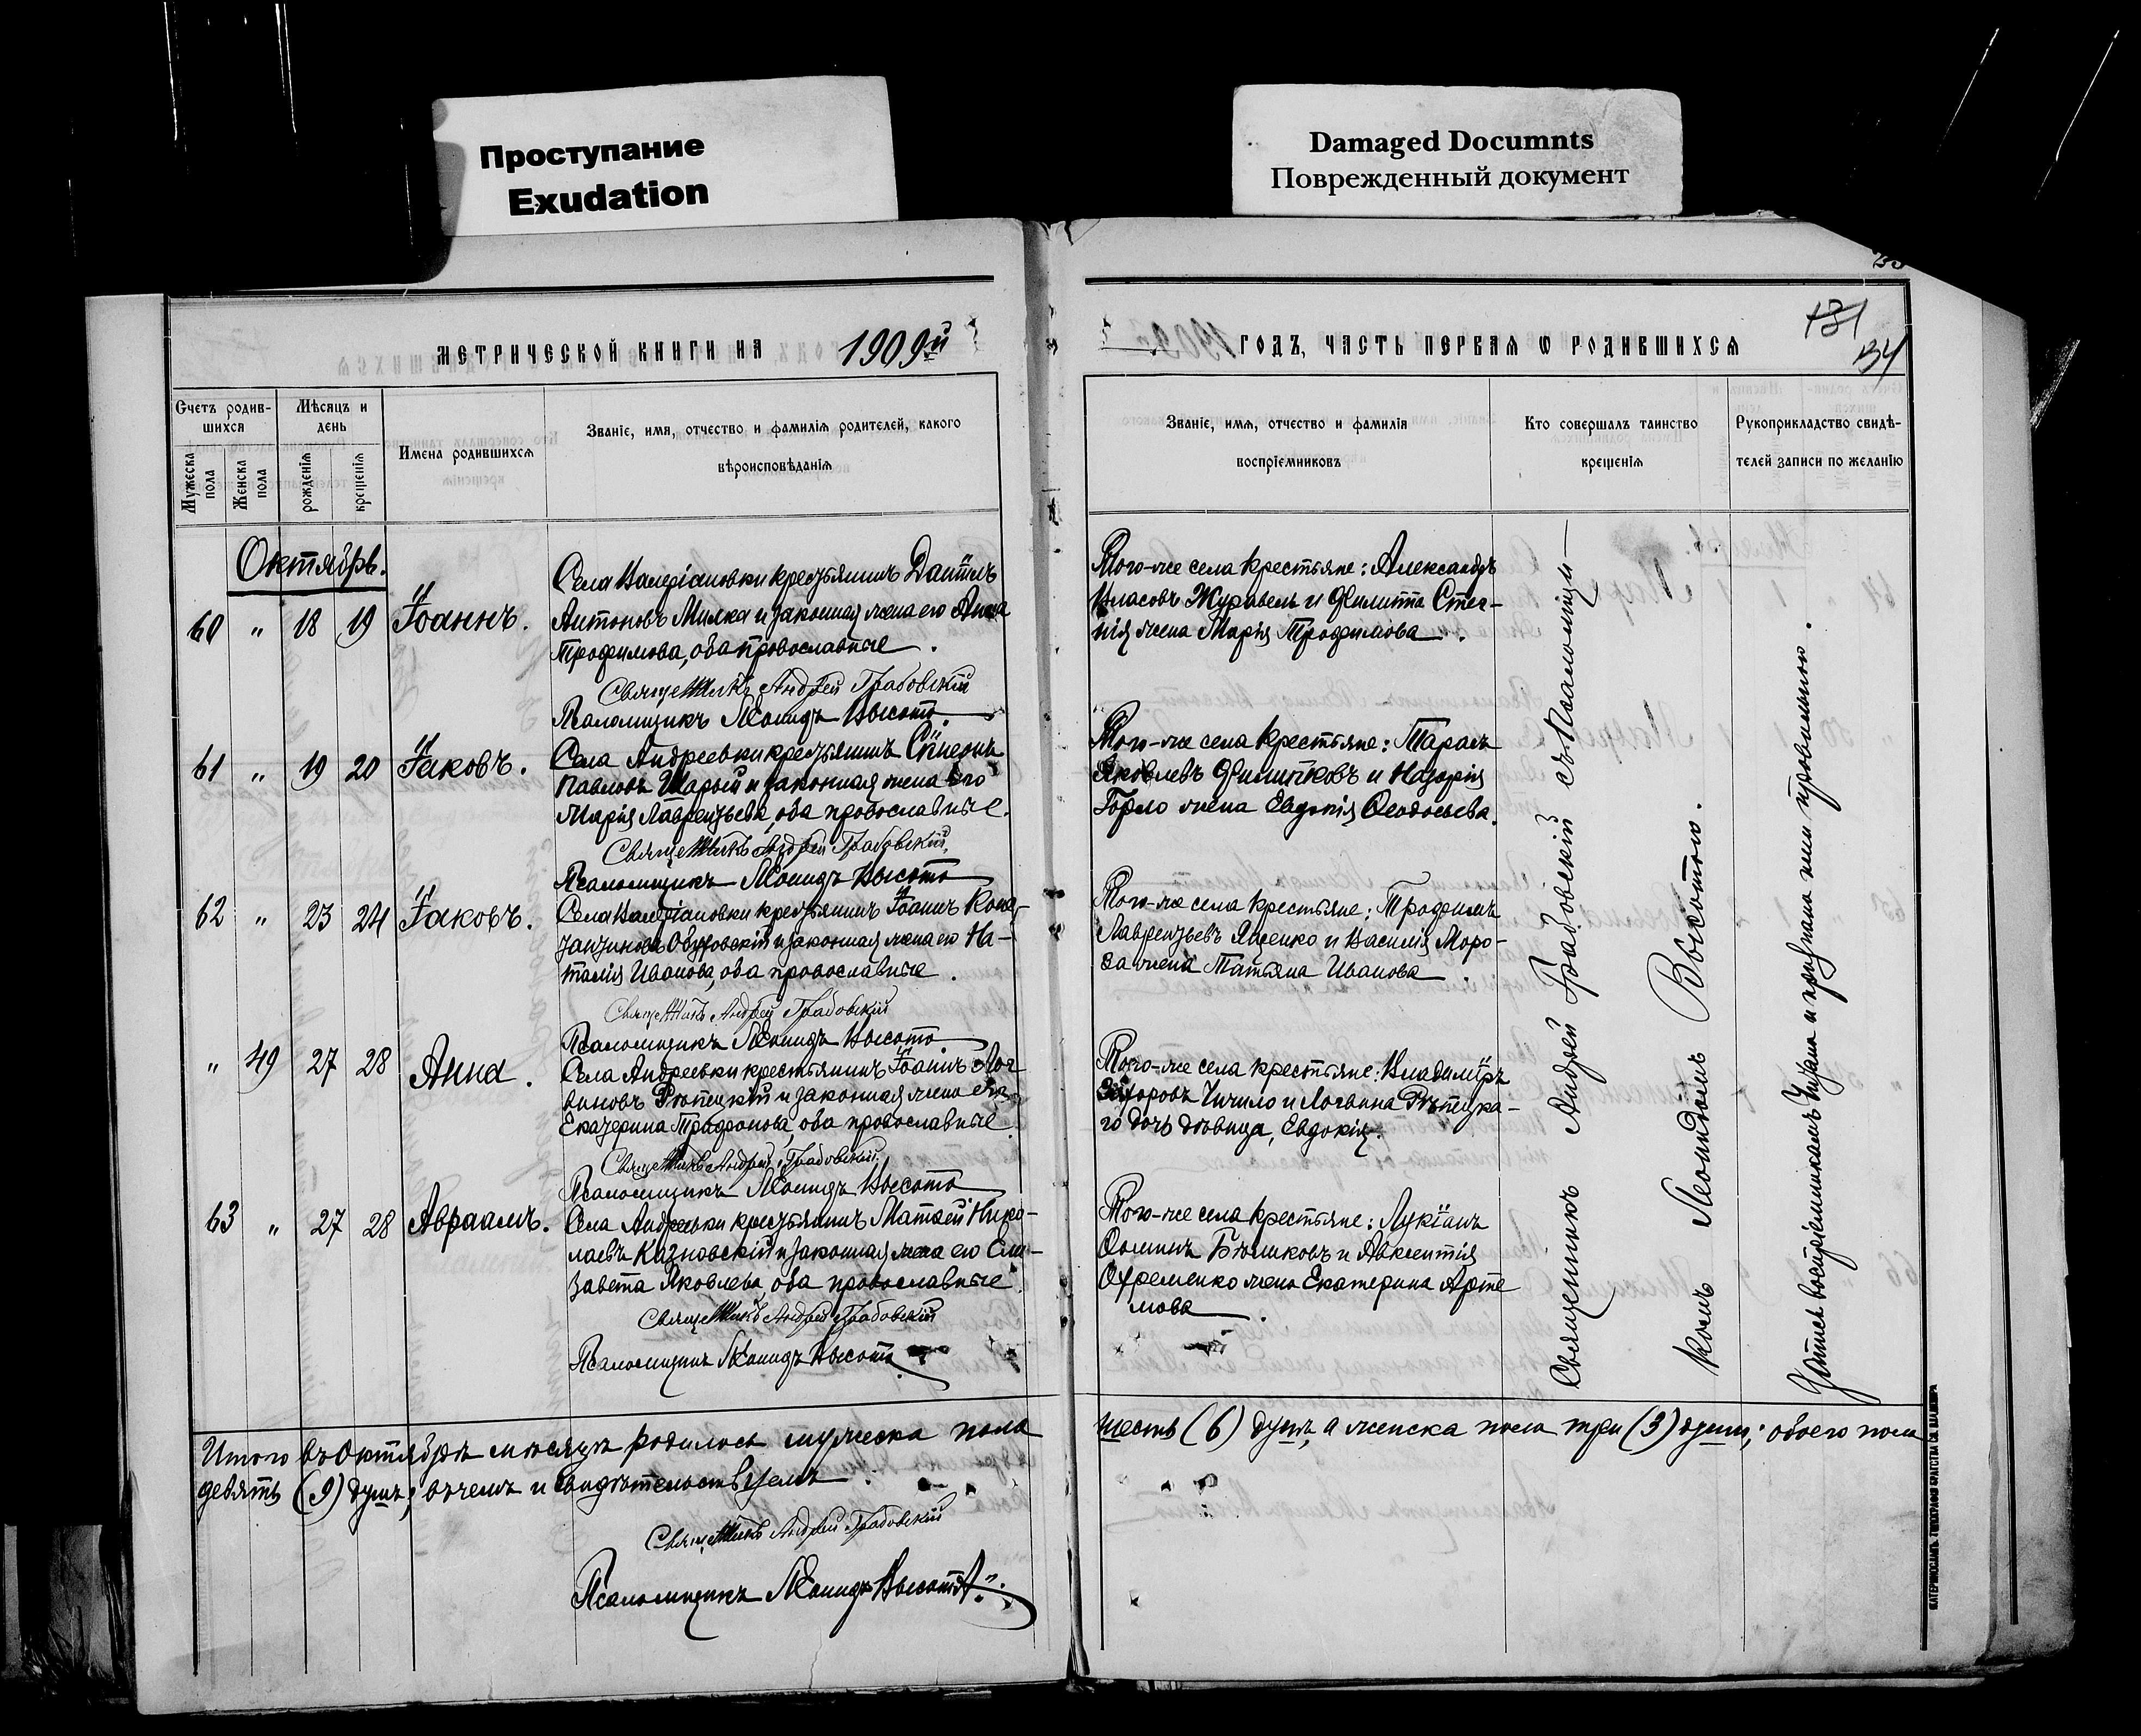 Проступание
Exudation
Damaged Documnts
Поврежденный документ
МЕТРИЧЕСКОЙ КНИГИ НА 1909й
Счетъ родив-
шихся
Мѣсяцъ и
день
Мужеска
пола
Женска
пола
рожденія
крещенія
Имена родившихся
Званіе, имя, отчество и фамилія родителей, какого
вѣроисповѣданія
Октябрь.
60 " 18 19 Іоаннъ.
Села Валеріановки крестьянинъ Даніилъ
Антоновъ Милка и законная жена его Анна
Трофимова, оба православные.
Священникъ Андрей Грабовскій
Псаломщикъ Леонидъ Высота.
61 " 19 20 Іаковъ.
Села Андреевки крестьянинъ Сѵмеонъ
Павловъ Шарый и законная жена его
Марія Лаврентьева, оба православные.
Священникъ Андрей Грабовскій.
Псаломщикъ Леонидъ Высота
62 " 23 24 Іаковъ.
Села Валеріановки крестьянинъ Іоаннъ Конс-
тантиновъ и законная жена его На-
талія Иванова, оба православные.
Священникъ Андрей Грабовскій
Псаломщикъ Леонидъ Высота.
" 49 27 28 Анна.
Села Андреевки крестьянинъ Іоаннъ Лог
виновъ Рѣпецкій и законная жена его
Екатерина Трифонова, оба православные.
Священникъ Андрей Грабовскій.
Псаломщикъ Леонидъ Высота
63 " 27 28 Авраамъ.
Села Андреевки крестьянинъ Матѳей Нико-
лаевъ Казновскій и законная жена его Ели-
завета Яковлева, оба православные.
Священникъ Андрей Грабовскій
Псаломщикъ Леонидъ Высота.
Итого въ Октябрѣ мѣсяцѣ родилось мужеска пола
девять (9) душъ; въ чемъ и свидѣтельствуемъ.
Священникъ Андрей Грабовскій
Псаломщикъ Леонидъ Высота.
131
134
ГОДЪ, ЧАСТЬ ПЕРВАЯ Ѡ РОДИВШИХСЯ
Званіе, имя, отчество и фамилія
воспріемниковъ
Кто совершалъ таинство
крещенія
Рукоприкладство свидѣ-
телей записи по желанію
Того-же села крестьяне: Александръ
Власовъ Журавель и Филиппа Стег-
нія жена Марія Трофимова.
Того-же села крестьяне: Тарасъ
Яковлевъ Филипковъ и Назарія
Горло жена Евдокія Ѳеодосьева.
Того-же села крестьяне: Трофимъ
Лаврентьевъ Яценко и Василія Моро-
за жена Татьяна Иванова.
Того-же села крестьяне: Владиміръ
Чичило и Логвина Рѣпецка-
го дочь дѣвица, Евдокія.
Того-же села крестьяне: Лукіанъ
Ѳоминъ Бѣликовъ и Авксентія
Охременко жена Екатерина Арте
мова.
Священникъ Андрей Грабовскій съ Псаломщи-
комъ Леонидомъ Высотою.
Запись воспріемникамъ читана и признана ими правильною.
шесть (6) душъ, а женска пола три (3) души; обоего пола
ЕКАТЕРИНОСЛАВЪ. ТИПОГРАФІЯ БРАТСТВА СВ. ВЛАДИМІРА